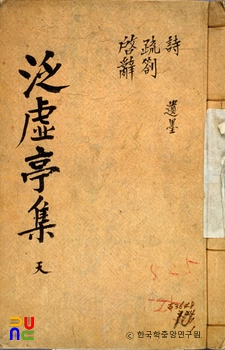 詩
遺墨
疏箚
啓辭
泛虛亭集
天
© 한국학중앙연구원